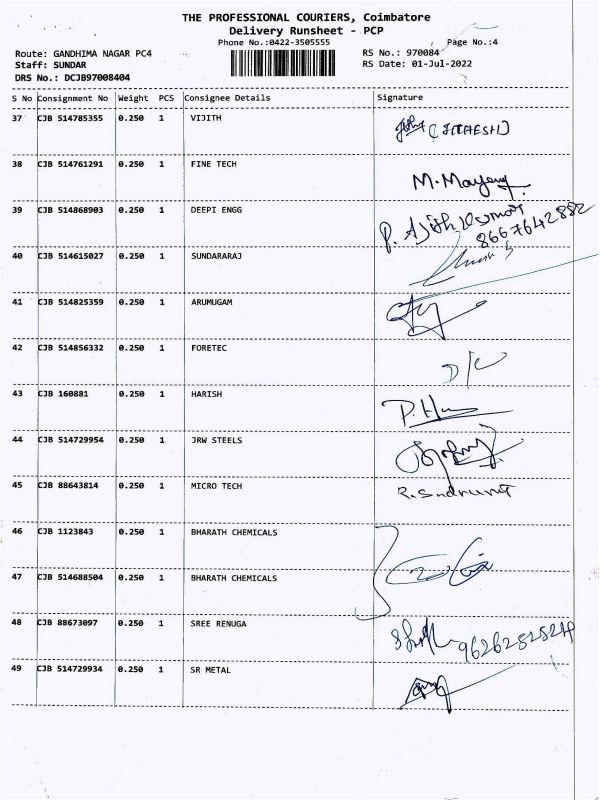 THE PROFESSIONAL COURIERS, Coimbatore
Delivery Runsheet - PCP
Phone No.:0422-3505555 Page No.:4
Route: GANDHIMA NAGAR PC4 RS No.: 970084
Staff: SUNDAR RS Date: 01-Jul-2022
DRS No.: DCJB97008404
S No Consignment No Weight PCS Consignee Details Signature
37 CJB 514785355 0.250 1 VIJITH (JITHESH)
38 CJB 514761291 0.250 1 FINE TECH M.Mayeng
39 CJB 514868903 0.250 1 DEEPI ENGG P. Ajith Kumar
8667642882
40 CJB 514615027 0.250 1 SUNDARARAJ
41 CJB 514825359 0.250 1 ARUMUGAM
42 CJB 514856332 0.250 1 FORETEC D/C
43 CJB 160881 0.250 1 HARISH
44 CJB 514729954 0.250 1 JRW STEELS
45 CJB 88643814 0.250 1 MICRO TECH
46 CJB 1123843 0.250 1 BHARATH CHEMICALS
47 CJB 514688504 0.250 1 BHARATH CHEMICALS
48 CJB 88673097 0.250 1 SREE RENUGA
49 CJB 514729934 0.250 1 SR METAL